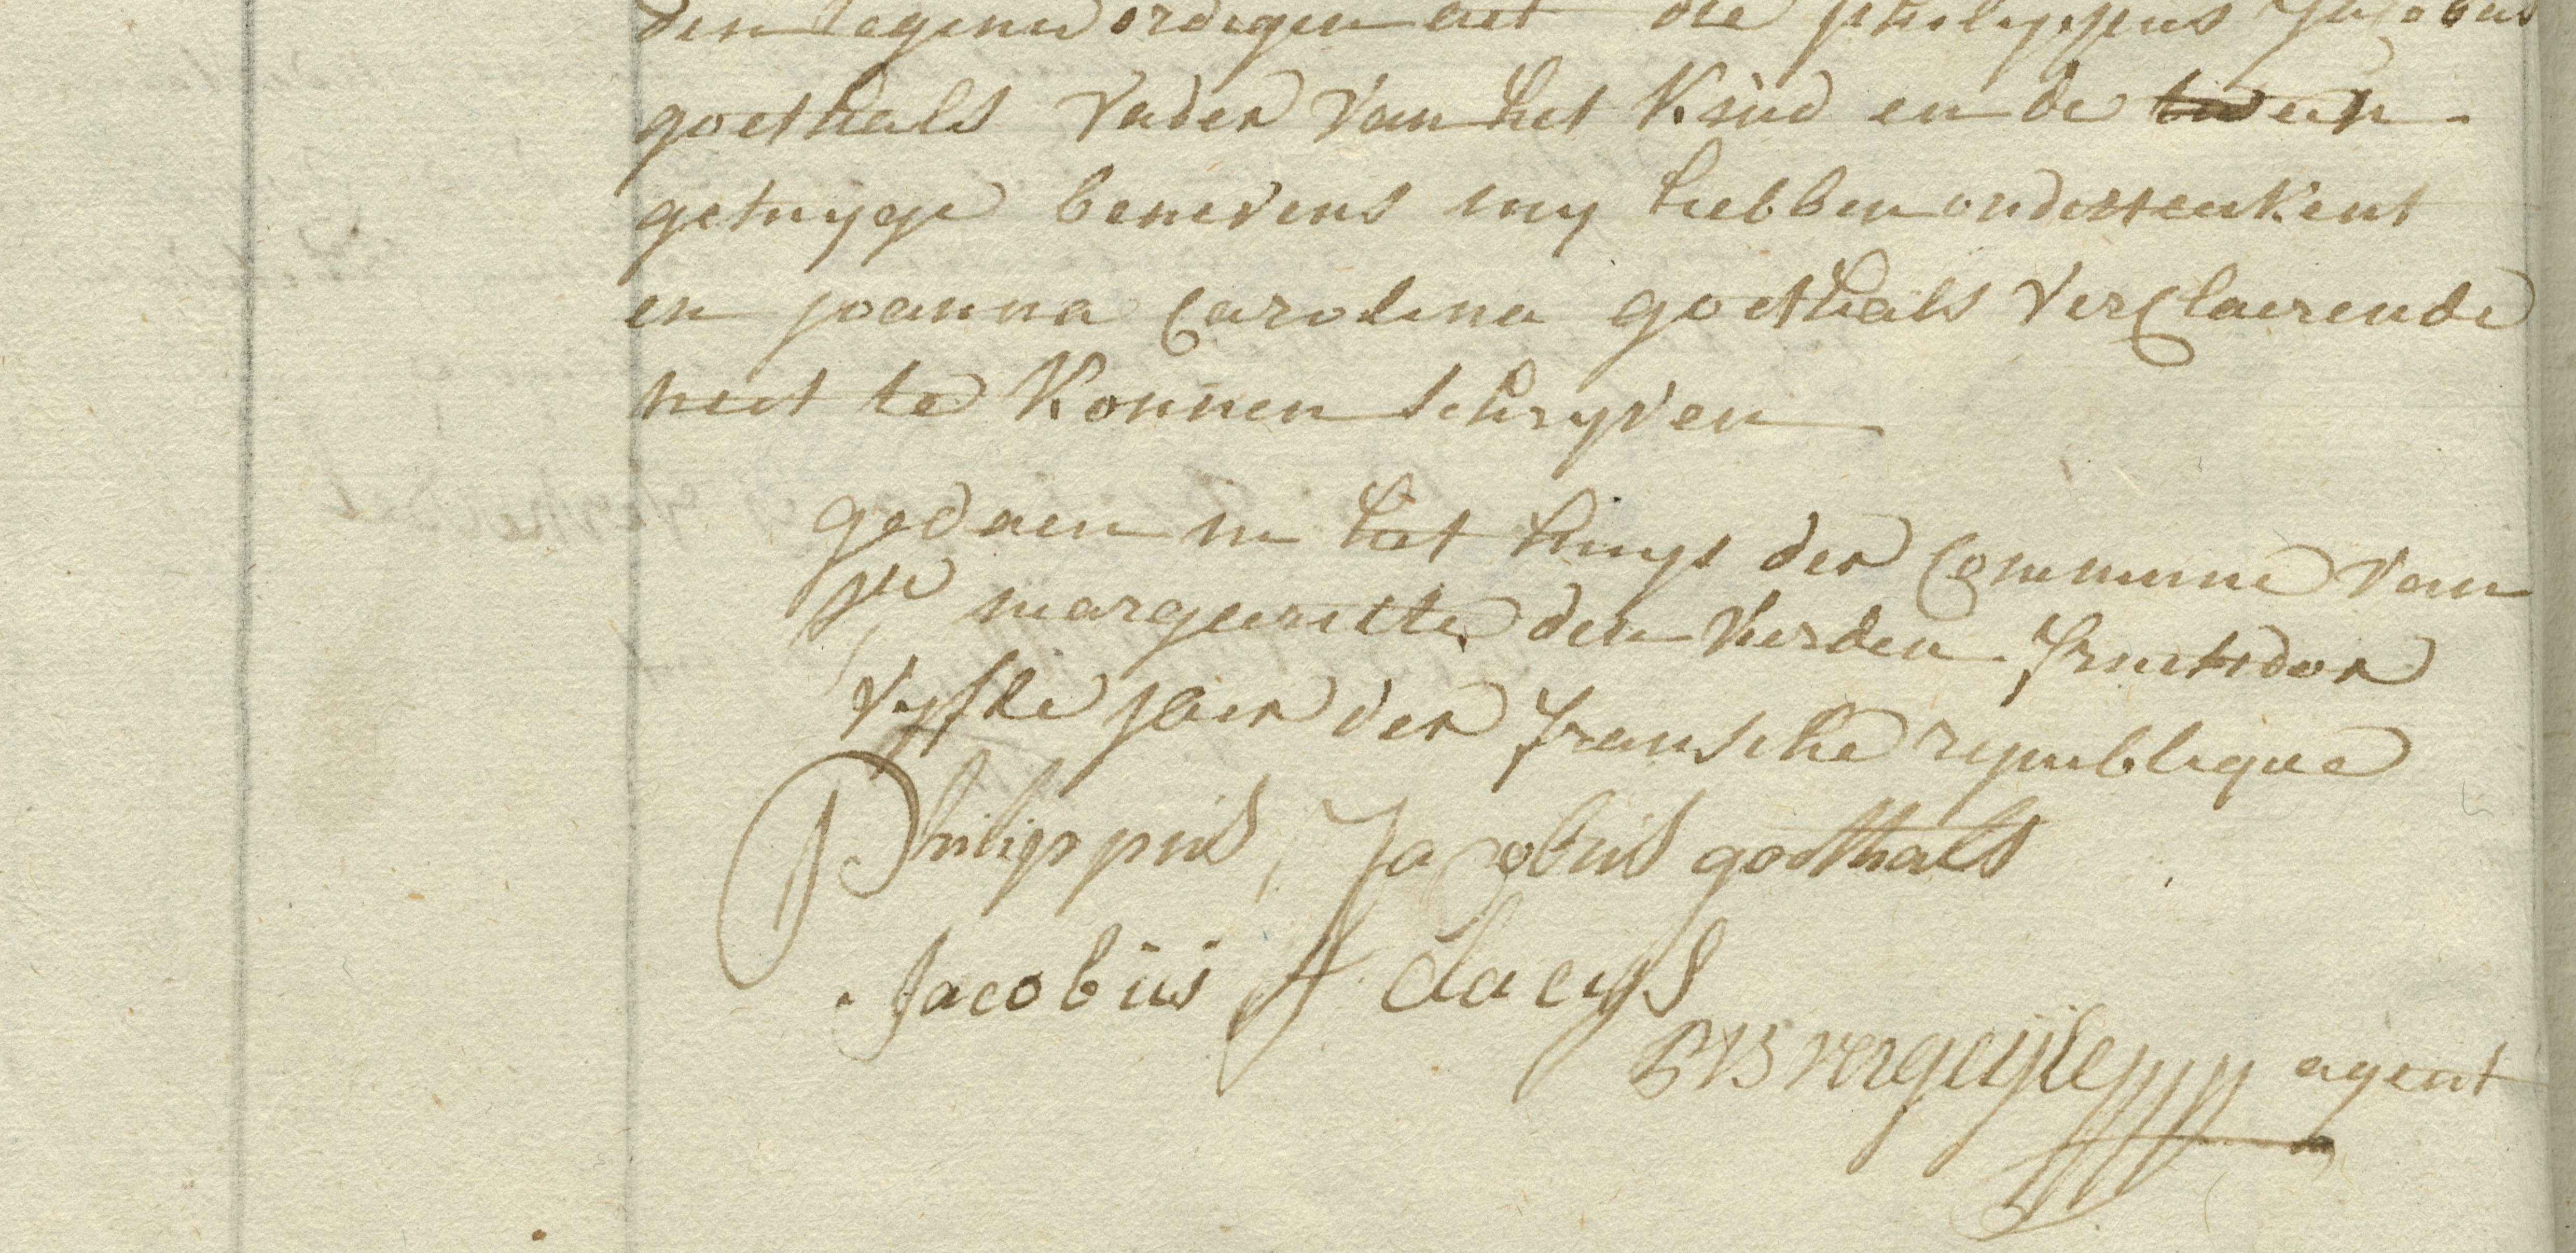 den tegenwordigen act die philippus Jacobus
goethals vader van het Kind en de een
getuyge benevens my hebben onderteekent
en joanna Carolina goethals verclaerende
niet te konnen schryven
gedaen in het huys der Commune van
Ste margueritte den vierden fructidor
vyfde jaer der fransche republique
Philippus Jacobus goethals
Jacobus claeys
agent